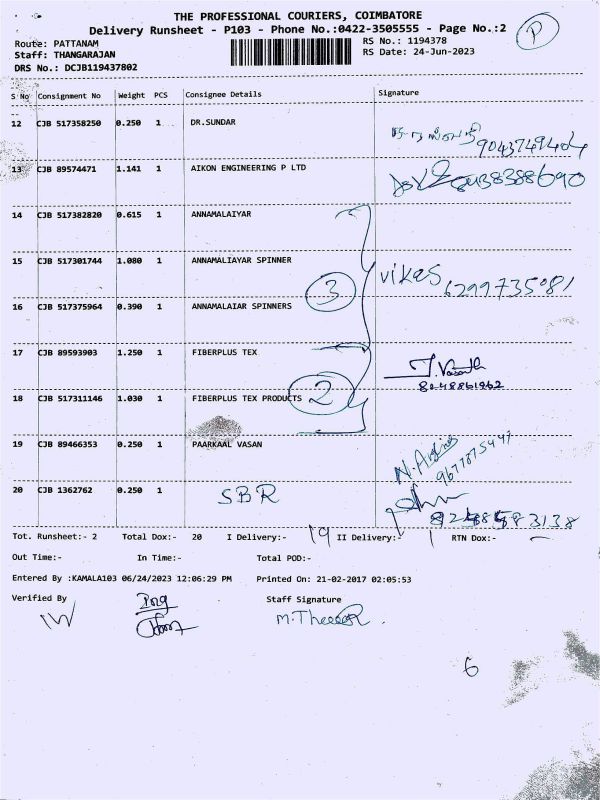 THE PROFESSIONAL COURIERS, COIMBATORE
Delivery Runsheet - P103 - Phone No.:0422-3505555 - Page No.:2
P
Route: PATTANAM
RS No.: 1194378
Staff: THANGARAJAN
RS Date: 24-Jun-2023
DRS No.: DCJB119437802
S No Consignment No Weight PCS Consignee Details Signature
12 CJB 517358250 0.250 1 DR.SUNDAR
9043749404
13 CJB 89574471 1.141 1 AIKON ENGINEERING P LTD
14 CJB 517382820 0.615 1 ANNAMALAIYAR
15 CJB 517301744 1.080 1 ANNAMALIAYAR SPINNER
3 vikas 6299735081
16 CJB 517375964 0.390 1 ANNAMALAIAR SPINNERS
17 CJB 89593903 1.250 1 FIBERPLUS TEX
8048861962
18 CJB 517311146 1.030 1 FIBERPLUS TEX PRODUCTS 2
19 CJB 89466353 0.250 1 PAARKAAL VASAN
9677875447
20 CJB 1362762 0.250 1 SBR
Tot. Runsheet:- 2 Total Dox:- 20 I Delivery:- 19 II Delivery:- 1 RTN Dox:- -
Out Time:- In Time:- Total POD:-
Entered By :KAMALA103 06/24/2023 12:06:29 PM Printed On: 21-02-2017 02:05:53
Verified By Staff Signature
6